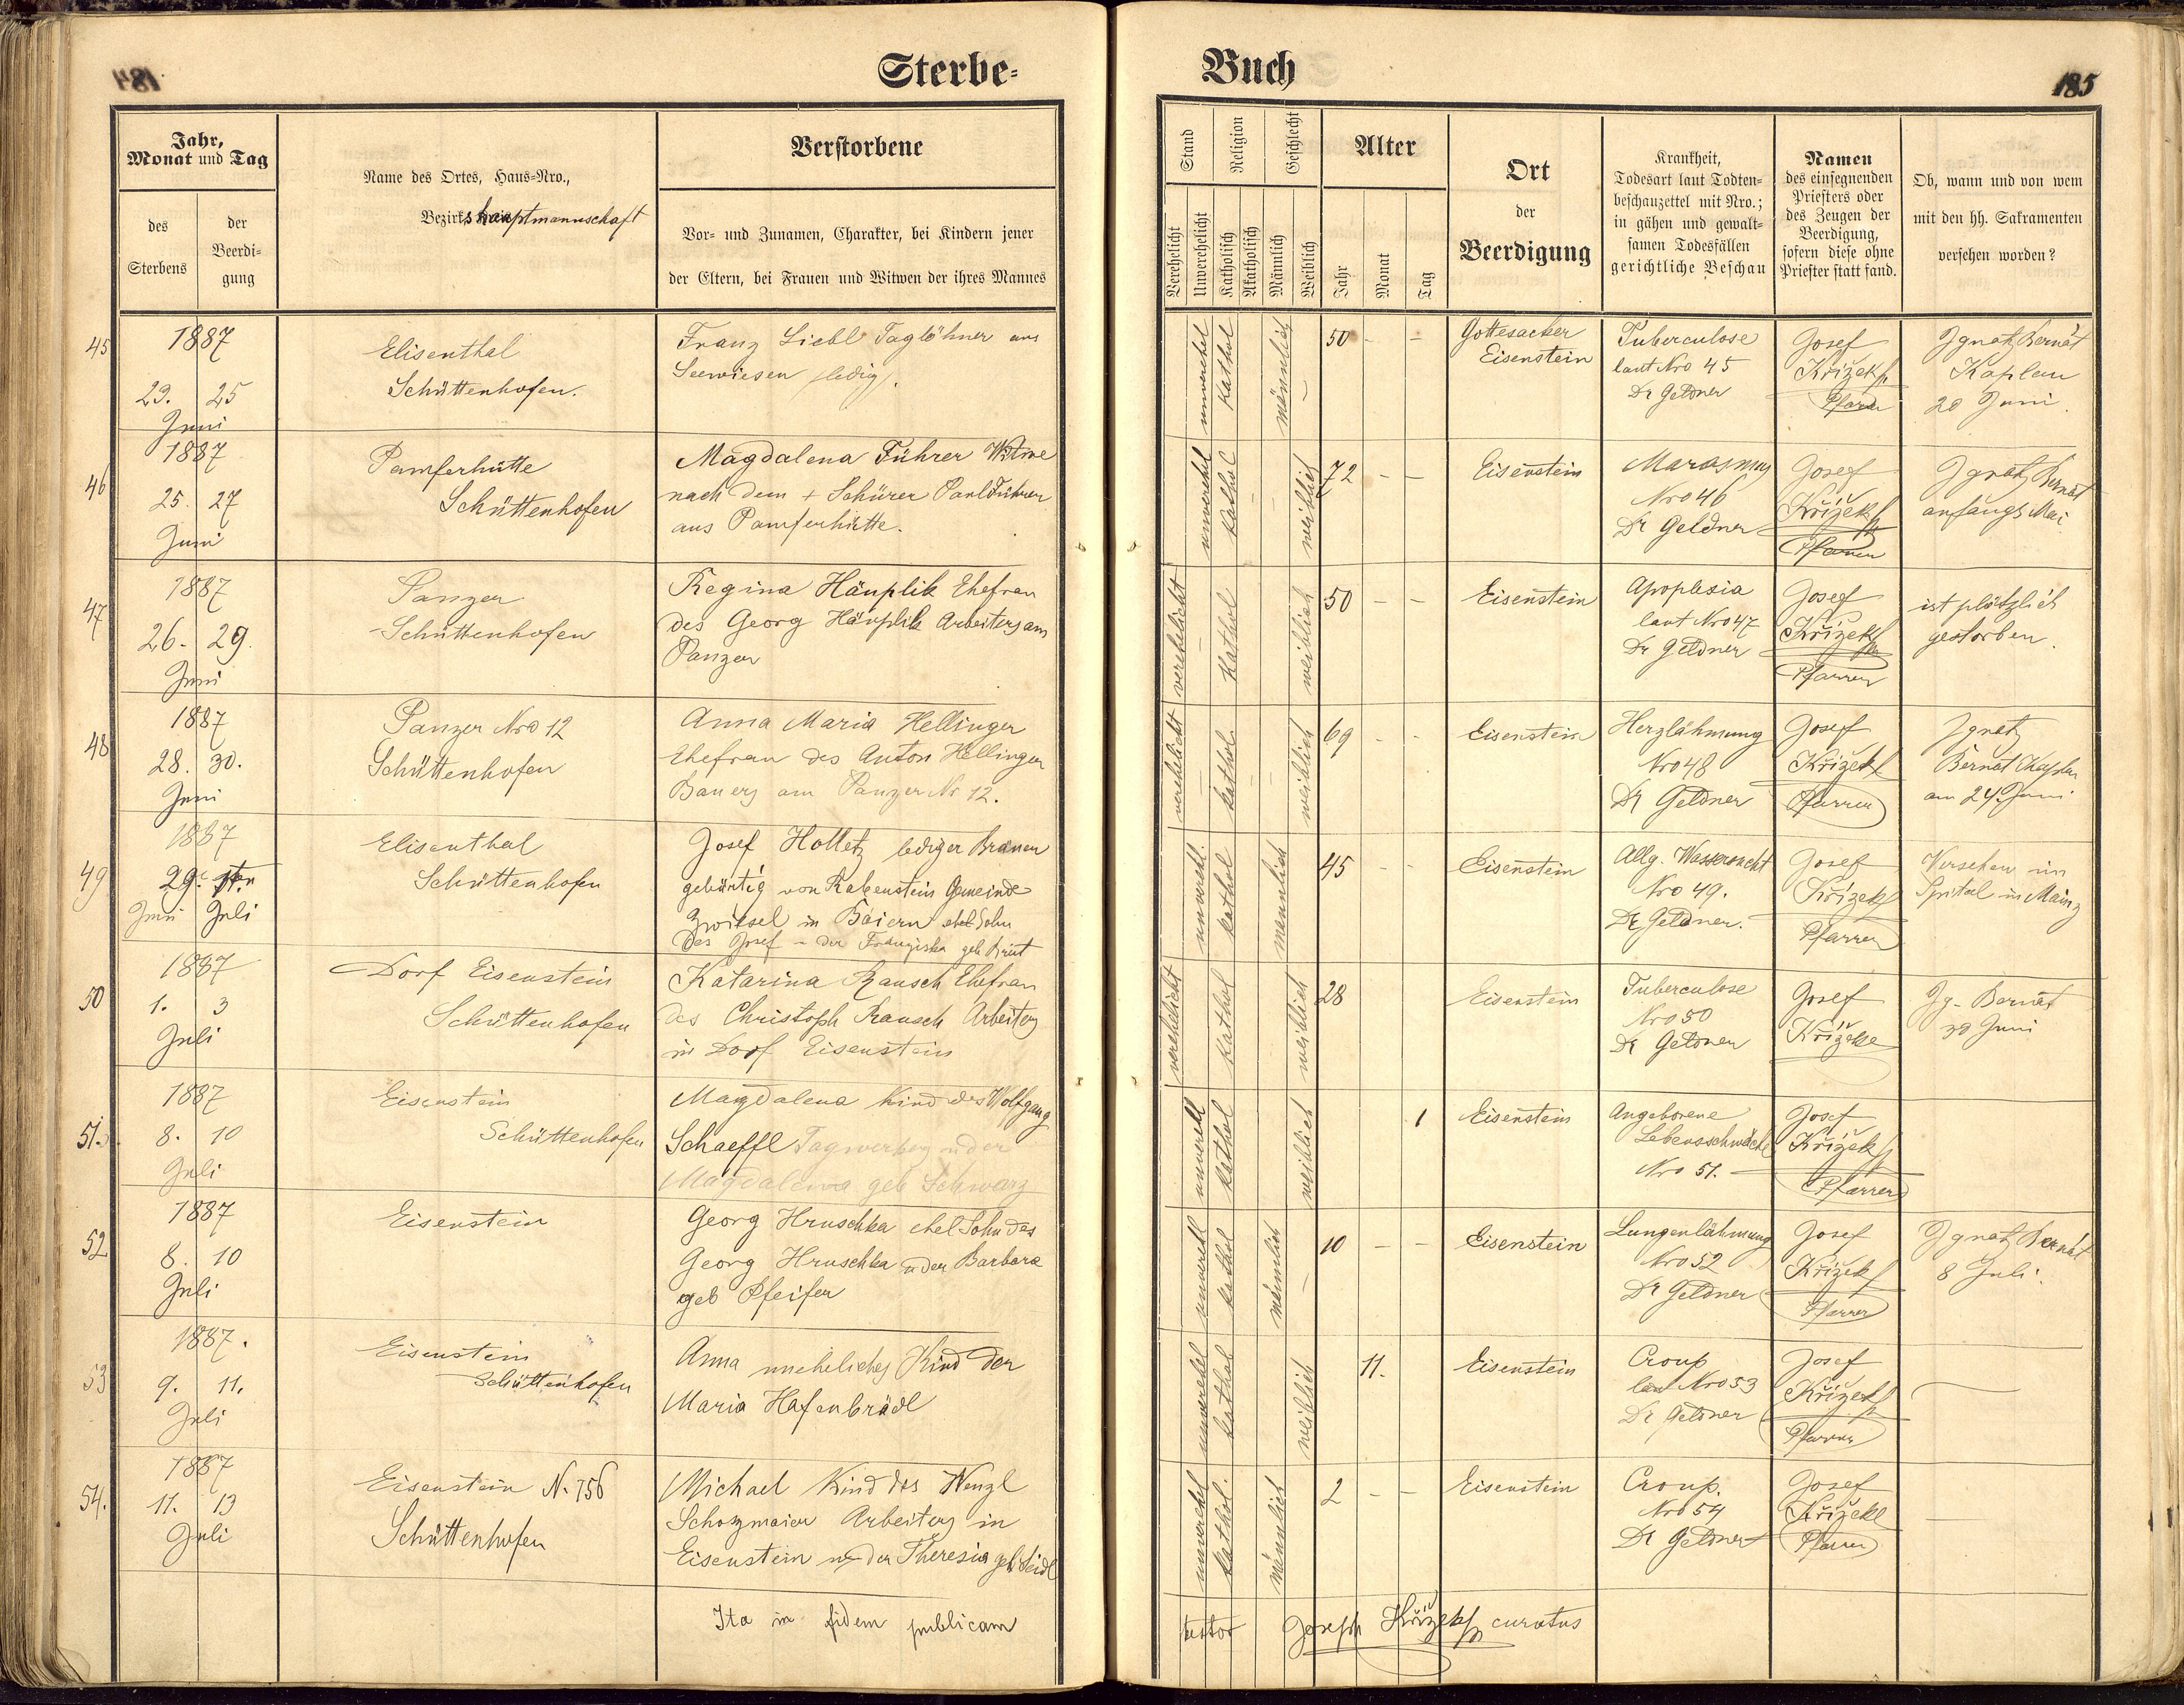 184
Sterbe-
Jahr,
Monat und Tag
des
Sterbens
der
Beerdi-
gung
Name des Ortes, Haus-Nro.,
Bezirkshauptmannschaft
Verstorbene
Vor- und Zunamen, Charakter, bei Kindern jener
der Eltern, bei Frauen und Witwen der ihres Mannes
45
1887
23. 25
Juni
Elisenthal
Schüttenhofen.
Franz Liebl Taglöhner aus
Seewiesen ledig.
46
1887
25. 27
Juni
Pamferhütte
Schüttenhofen
Magdalena Führer Witwe
nach dem + Schürer Paul Führer
aus Pamferhütte.
47
1887
26. 29.
Juni
Panzer
Schüttenhofen
Regina Häuplik Ehefrau
des Georg Häuplik Arbeiters am
Panzer
48
1887
28. 30.
Juni
Panzer Nro 12
Schüttenhofen
Anna Maria Hellinger
Ehefrau des Anton Hellinger
Bauers am Panzer Nr 12.
49
1887
29.
Juni Juli
Elisenthal
Schüttenhofen
Josef Holletz lediger Brauer
gebürtig von Rabenstein Gemeinde
Zwiesel in Baiern ehel Sohn
des Josef u der Franziska geb
50
1887
1. 3
Juli
Dorf Eisenstein
Schüttenhofen
Katarina Rausch Ehefrau
des Christoph Rausch Arbeiters
in Dorf Eisenstein
51.
1887
8. 10
Juli
Eisenstein
Schüttenhofen
Magdalena Kind des Wolfgang
Schaeffl Tagwerkers u der
Magdalena geb Schwarz
52
1887
8. 10
Juli
Eisenstein
Georg Hruschka ehel Sohn des
Georg Hruschka u der Barbara
geb Pfeifer
53
1887.
9. 11.
Juli
Eisenstein
Schüttenhofen
Anna uneheliches Kind der
Maria Hafenbrädl
54.
1887
11. 13
Juli
Eisenstein N. 156
Schüttenhofen
Michael Kind des Wenzl
Schozmaier Arbeiters in
Eisenstein u der Theresia geb Seidl
Ita in fidem publicam
Buch
185
Stand
Religion
Geschlecht
Verehelicht
Unverehelicht
Katholisch
Akatholisch
Männlich
Weiblich
Alter
Jahr
Monat
Tag
Ort
der
Beerdigung
Krankheit,
Todesart laut Todten-
beschauzettel mit Nro.;
in gähen und gewalt-
samen Todesfällen
gerichtliche Beschau
Namen
des einsegnenden
Priesters oder
des Zeugen der
Beerdigung,
sofern diese ohne
Priester statt fand.
Ob, wann und von wem
mit den hh. Sakramenten
versehen worden?
unverehel
kathol
männlich
50 - -
Gottesacker
Eisenstein
Tuberculose
laut Nro 45
Dr Geldner
Josef
Křížek
Pfarrer
Ignatz Bernát
Kaplan
20 Juni.
unverehel
kathol
weiblich
72 - -
Eisenstein
Marasmus
Nro 46
Dr Geldner
Josef
Křížek
Pfarrer
Ignatz Bernát
anfangs Mai
verehelicht
kathol
weiblich
50 - -
Eisenstein
Apoplexia
laut Nro 47
Dr Geldner
Josef
Křížek
Pfarrer
ist plötzlich
gestorben.
verehelicht
kathol
weiblich
69 - -
Eisenstein
Herzlähmung
Nro 48
Dr Geldner
Josef
Křížek
Pfarrer
Ignatz
Bernát Kaplan
am 24 Juni
unverehl.
kathol
männlich
45 -
Eisenstein
Allg. Wassersucht
Nro 49.
Dr Geldner.
Josef
Křížek
Pfarrer
Versehen im
Spital in Mainz
verehelicht
kathol
weiblich
28
Eisenstein
Tuberculose
Nro 50
Dr Geldner
Josef
Křížek
Ig. Bernát
30 Juni
unverehl
kathol
weiblich
1
Eisenstein
Angeborene
Lebensschwäche
Nro 51.
Josef
Křížek
Pfarrer
unverehl
kathol
männlich
10 - -
Eisenstein
Lungenlähmung
Nro 52
Dr Geldner
Josef
Křížek
Pfarrer
Ignatz Bernát
8 Juli.
unverehel
kathol
weiblich
11.
Eisenstein
Croup
laut Nro 53
Dr Geldner
Josef
Křížek
Pfarrer
unverehel
kathol.
männlich
2 - -
Eisenstein
Croup.
Nro 54
Dr Geldner
Josef
Křížek
Pfarrer
testor Joseph Křížek curatus